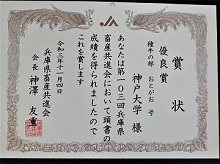 賞状
優良賞
種牛の部 おとがお 号
神戸大学 様
あなたは第一〇三回兵庫県
畜産共進会において頭書の
成績を得られましたので
これを賞します
令和三年十一月四日
兵庫県畜産共進会
会長 神澤友重